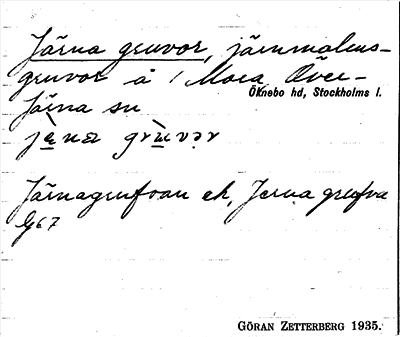 Järna gruvor, järnmalms-
gruvor å 1 Mora, Över-
Öknebo hd, Stockholms l.
Järna sn
Järnagrufvan ek, Jerna grufva
G67
GÖRAN ZETTERBERG 1935.